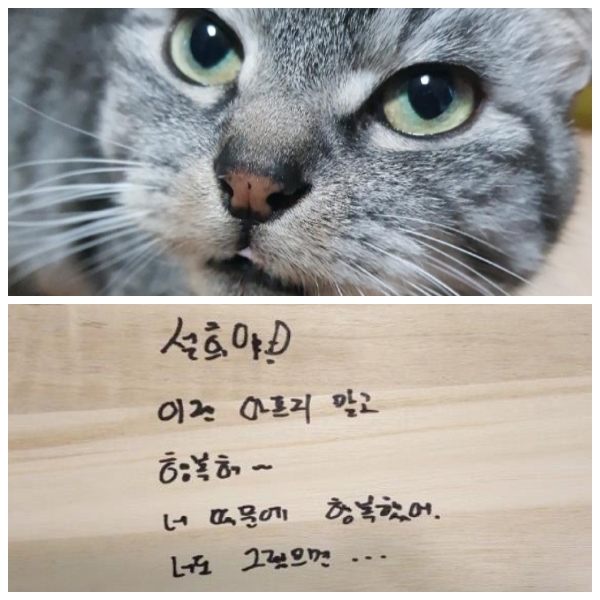 설흐야
이젠 아프지 말고
행복해~
너 때문에 행복했어.
너도 그랬으면...